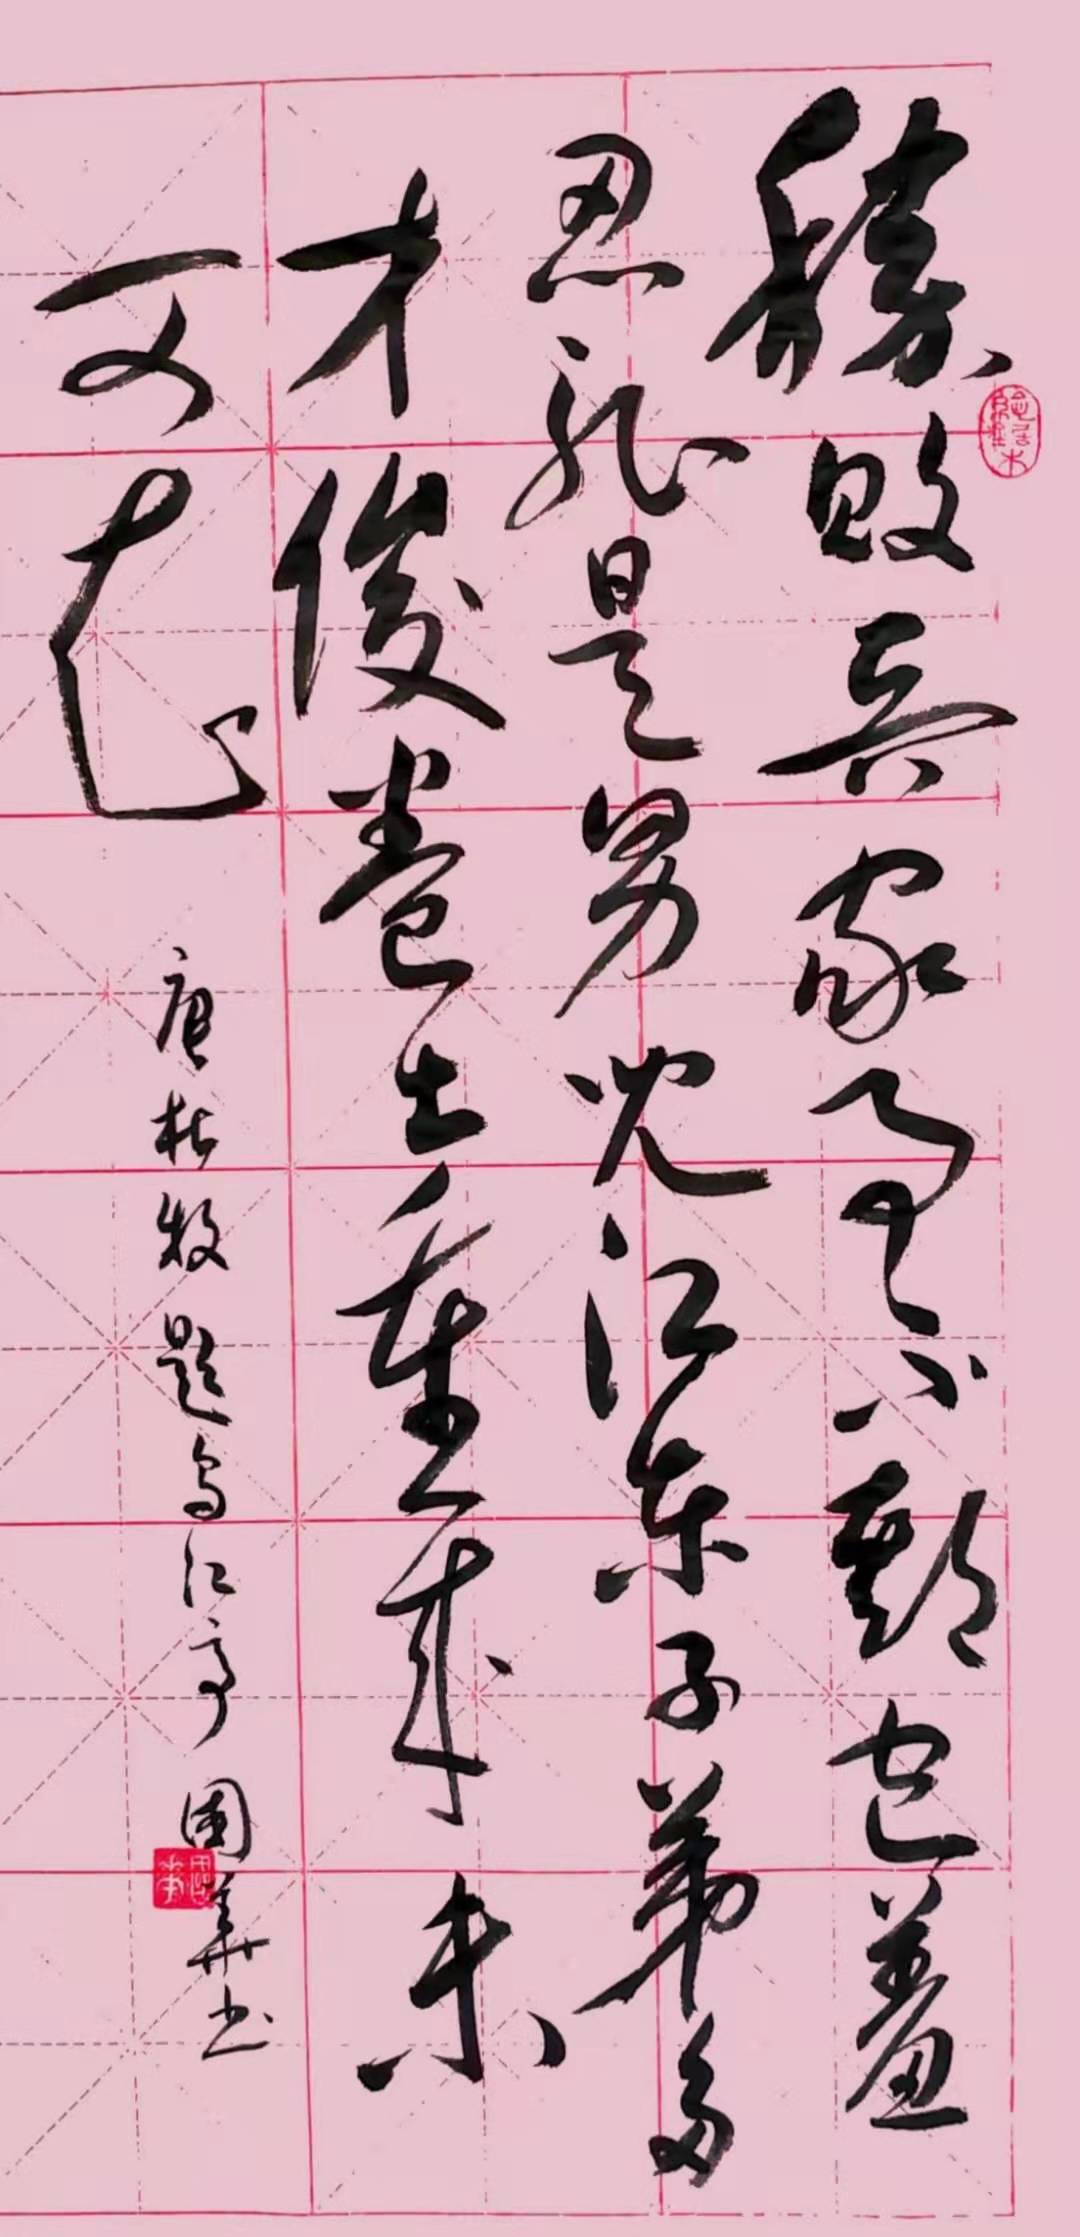 勝敗兵家事不期包羞
忍耻是男兒江东子弟多
才俊卷土重来未
可知
唐杜牧题乌江亭 國華书